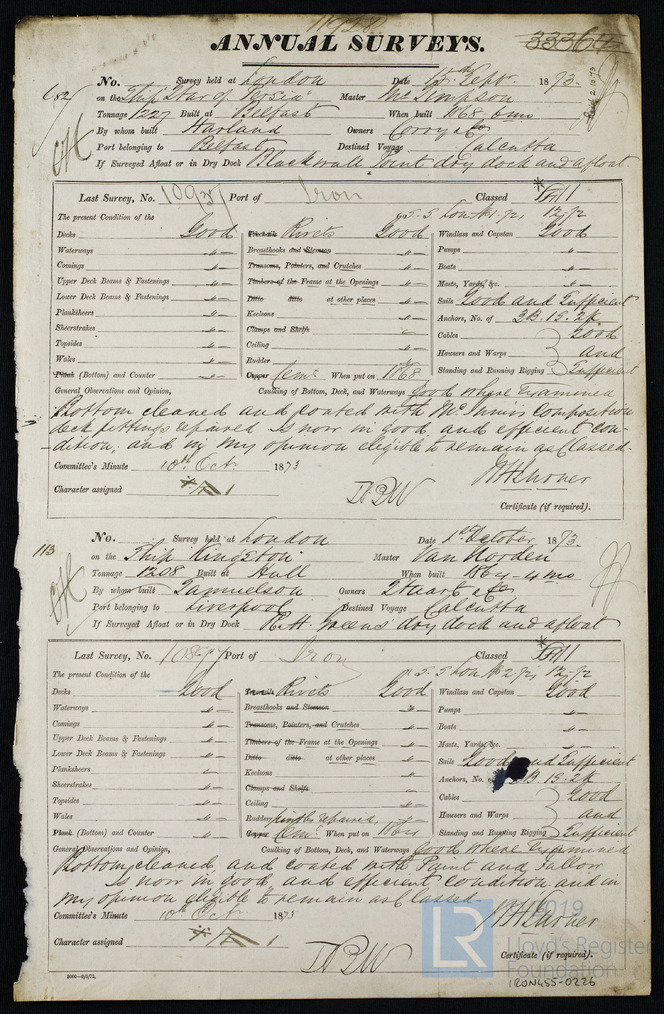 ANNUAL SURVEYS.
33364
No. Survey held at London Date 15th Sept. 1873.
82
on the Ship Star of Persia Master Mc Simpson
Tonnage 1227 Built at Belfast When built 1868. 6 mo
By whom built Harland Owners Corry & Co
Port belonging to Belfast Destined Voyage Calcutta
If Surveyed Afloat or in Dry Dock Blackwall Point dry dock and afloat
Last Survey, No. 10937 Port of Iron Classed
The present Condition of the
Decks Good Rivets Good Windlass and Capstan Good
Waterways " Breasthooks and Stemson " Pumps "
Comings " Transoms, Pointers, and Crutches " Boats "
Upper Deck Beams & Fastenings " Timbers of the Frame at the Openings " Masts, Yards, &c. "
Lower Deck Beams & Fastenings " Ditto ditto at other places " Sails Good and Sufficient
Planksheers " Keelsons " Anchors, No. of 3B. 1S. 2K
Sheerstrakes " Clamps and Shelfs Cables Good
Topsides " Ceiling " Hawsers and Warps and
Wales " Rudder " Standing and Running Rigging Sufficient
Plank (Bottom) and Counter " Copper Cemt When put on 1868
General Observations and Opinion, Caulking of Bottom, Deck, and Waterways Good where Examined
Bottom cleaned and coated with Mc Innis Composition
deck fittings repaired Is now in good and efficient con-
-dition. and in my opinion eligible to remain as Classed.
Committee's Minute 10th Oct. 1873
Character assigned
Certificate (if required).
No. Survey held at London Date 1st October 1873
113
on the Ship Kingston Master Van Norden
Tonnage 1208 Built at Hull When built 1864 - 4 mo
By whom built Samuelson Owners Stuart & Co
Port belonging to Liverpool Destined Voyage Calcutta
If Surveyed Afloat or in Dry Dock R. H. Greens' dry dock and afloat
Last Survey, No. Port of Iron Classed
The present Condition of the
Decks Good Rivets Good Windlass and Capstan Good
Waterways " Breasthooks and Stemson " Pumps "
Comings " Transoms, Pointers, and Crutches " Boats "
Upper Deck Beams & Fastenings " Timbers of the Frame at the Openings " Masts, Yards, &c. "
Lower Deck Beams & Fastenings " Ditto ditto at other places " Sails Good and Sufficient
Planksheers " Keelsons " Anchors, No. of 3B. 1S. 2K
Sheerstrakes " Clamps and Shelfs Cables Good
Topsides " Ceiling " Hawsers and Warps and
Wales " Rudder repaired Standing and Running Rigging Sufficient
Plank (Bottom) and Counter " Copper Cemt When put on 1864
General Observations and Opinion, Caulking of Bottom, Deck, and Waterways Good where Examined
Bottom cleaned, and coated with Paint and Tallow
Is now in good and efficient condition and in
my opinion eligible to remain as Classed
Committee's Minute 10th Oct. 1873
Character assigned
Certificate (if required).
2000—9/5/72.
LR
©2019
Lloyd's Register
Foundation
IRON455-0226